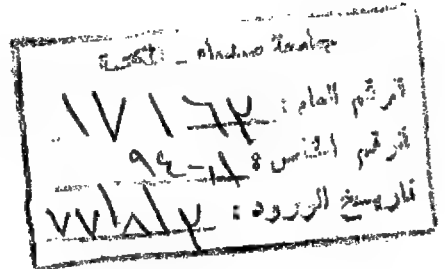 جامعة صدام - المكتبة
الرقم العام : ١٧١٦٢
الرقم الخاص :
تاريخ الورود : ٧٧/٨/٢